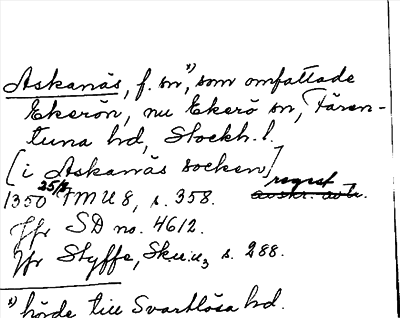 Askanäs, f. sn x), som omfattade
Ekerön, nu Ekerö sn, Fären-
tuna hd, Stockh. l.
[i Askanäs socken]
regest
1350 25/8 FMU 8, s. 358. avskr. avtr.
Jfr SD no. 4612.
Jfr Styffe, Sku.u3 s. 288.
x) hörde till Svartlösa hd.